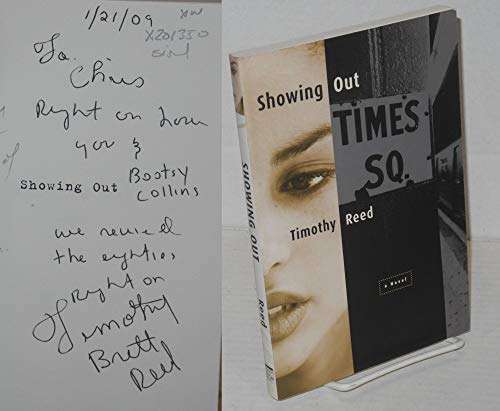 1/21/09
X201350
To.
Chris
Right on
you &
Showing Out Bootsy
Collins
we
the eighties
Right on
Timothy
Brett
Reed
Showing Out
TIMES
SQ.
Timothy Reed
a Novel
SHOWING OUT
Reed